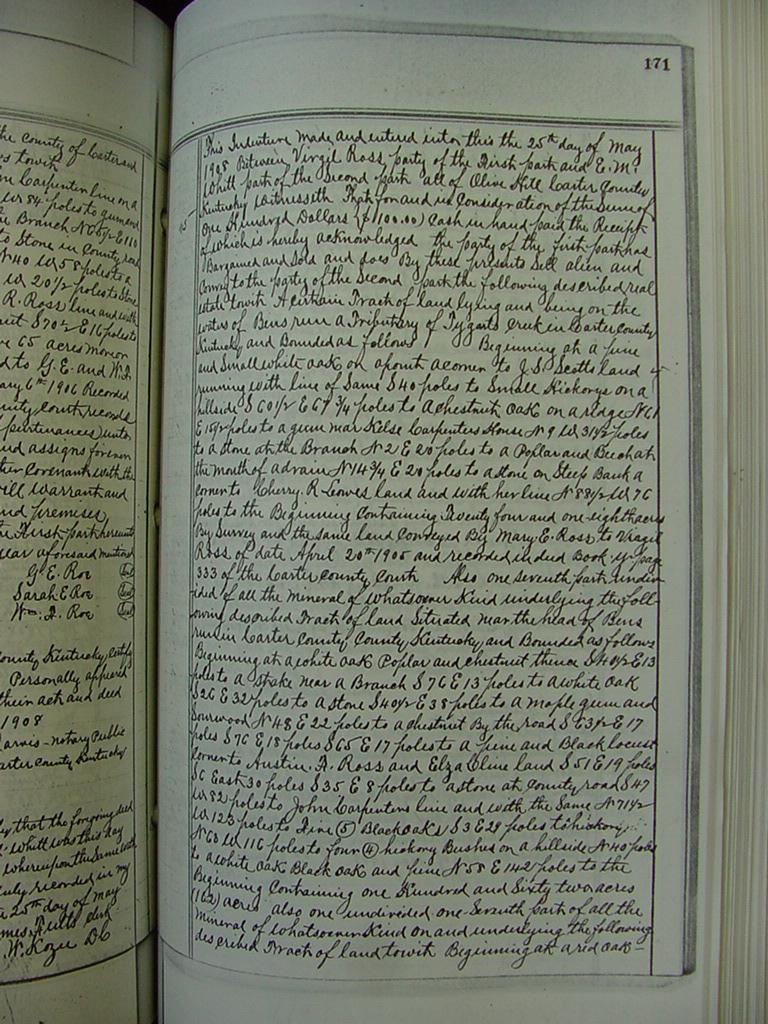 171
the County of Carter and
s towit
Carpenter line on a
W 84 poles to gum and
Branch N 65 1/2 E 110
to Stone in County road
N 40 W 58 poles to a
W 20 1/2 poles to Stone
R. Ross line and with
S 70 1/2 E 16 poles to
65 acres more or
d to G. E. and W. F.
ary 6th 1906 Recorded
County Court records
purtenances) unto
and assigns forever
Covenant with the
will Warrant and
premises
the First part hereunto
year aforesaid
G. E. Roe
Sarah E Roe
Wm. F. Roe
County Kentucky, Certify
Personally appeared
their act and deed
1908
Jarvis - notary Public
Carter County Kentucky
that the foregoing deed
Whitt was this day
whereupon the same with
duly recorded in my
25th day of May
clerk
W. Kozee DC
This Indenture Made and entered into this the 25th day of May
1908 Between Virgil Ross party of the First part and E. M.
Whitt part of the Second part all of Olive Hill Carter County
Kentucky Witnesseth That for and in Consideration of the Sum of
One Hundred Dollars ($100.00) Cash in hand paid the Receipt
of which is hereby acknowledged the party of the first part has
Bargained and Sold and does By these presents Sell alien and
Convey to the party of the Second part the following described real
estate towit A certain Tract of land lying and being on the
waters of Bens run a Tributary of Tygarts creek in Carter County
Kentucky and Bounded as follows Beginning at a pine
and Small white oak on a point a corner to J. S. Scotts land
running with line of Same S 40 poles to Small Hickorys on a
hillside S 60 1/2 E 67 3/4 poles to a chestnut Oak on a ridge N 61
E 15 1/2 poles to a gum near Kelse Carpenters House N 9 W 31 1/2 poles
to a Stone at the Branch N 21 E 20 poles to a Poplar and Beech at
the mouth of a drain N 14 3/4 E 20 poles to a Stone on Steep Bank a
corner to Cherry. R Lowes land and with her line N 88 1/2 W 76
poles to the Beginning Containing Twenty four and one-eighth acres
By Survey and the same land Conveyed By Mary E. Ross to Virgil
Ross of date April 20th 1905 and recorded in deed Book page
333 of the Carter County Court Also one Seventh part undiv
ided of all the Mineral of Whatsoever Kind underlying the foll-
owing described Tract of land Situated near the head of Bens
run in Carter County County Kentucky and Bounded as follows
Beginning at a white oak Poplar and chestnut thence S 40 1/2 E 13
poles to a Stake near a Branch S 76 E 13 poles to a white oak
S 26 E 32 poles to a Stone S 40 1/2 E 38 poles to a Maple gum and
Sourwood N 48 E 22 poles to a chestnut By the road S 63 1/2 E 17
poles S 76 E 18 poles S 65 E 17 poles to a pine and Black locust
Corner to Austin. F. Ross and Elza Cline land S 51 E 19 poles
S 6 East 30 poles S 35 E 8 poles to a Stone at County road S 47
W 82 poles to John Carpenters line and with the Same N 71 1/2
W 123 poles to Five (5) Black Oaks S 3 E 29 poles to hickory
N 63 W 116 poles to four (4) hickory Bushes on a hillside N 40 poles
to a white Oak Black oak and pine N 58 E 142 poles to the
Beginning Containing one Hundred and Sixty two acres
(162) acres also one undivided one Seventh part of all the
Mineral of whatsoever Kind on and underlying the following
described Tract of land towit Beginning at a red oak -